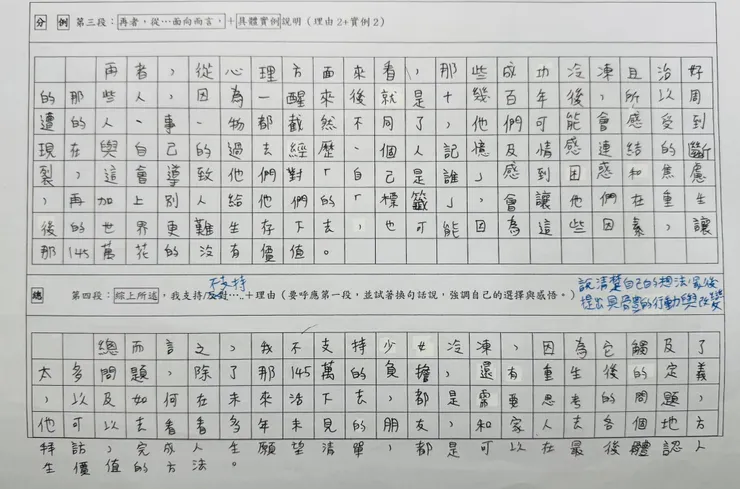 分 例 第三段：再者，從…面向而言，＋具體實例說明（理由2+實例2）
再者，從心理方面來看，那些成功冷凍且治好
的那些人，因為一醒來後就是十幾百年後，所以周
遭的人、事、物都截然不同了，他們可能會感受到
現在與自己的過去經歷、個人記憶及情感連結的斷
裂，這會導致他們對「自己是誰」感到困惑和焦慮
，再加上別人給他們的「標籤」，會讓他們在重生
後的世界更難生存下去，也可能因為這些因素，讓
那145萬花的沒有價值。
總 第四段：綜上所述，我支持/反對…..＋理由（要呼應第一段，並試著換句話說，強調自己的選擇與感悟。）
不支持
說清楚自己的想法,最後
提出具體的行動與改變
總而言之，我不支持少女冷凍，因為它觸及了
太多問題，除了那145萬的負擔，還有重生後的定義
，以及如何在未來活下去，都是需要思考的問題，
他可以去看看多年未見的朋友，和家人去各個地方
拜訪，完成人生願望清單，都是可以在最後體認人
生價值的方法。